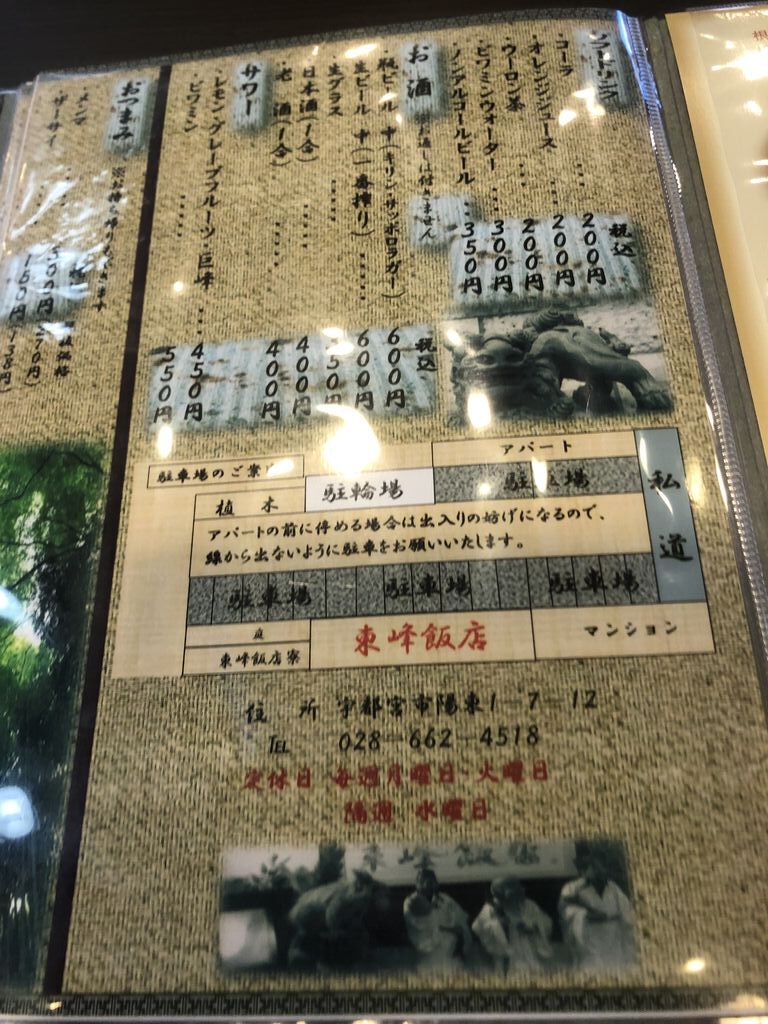 ソフトドリンク
・コーラ … 200円
・オレンジジュース … 200円
・ウーロン茶 … 200円
・ビタミンウォーター … 300円
・ノンアルコールビール … 350円
税込
お酒 ※お通しは付きません
・瓶ビール 中(キリン・サッポロラガー) 600円
・生ビール 中(一番搾り) 600円
・生グラス 50円
・日本酒(1合) 400円
・老 酒(1合) 400円
税込
サワー
・レモン・グレープフルーツ・巨峰 450円
・ビタミン 550円
おつまみ ※お持ち帰りできます
・メンマ
・ザーサイ
駐車場のご案
アパート
植木
駐輪場
駐 場
私道
アパートの前に停める場合は出入りの妨げになるので、
線から出ないように駐車をお願いいたします。
駐車場 駐車場 駐車場
庭
東峰飯店寮
東峰飯店
マンション
住 所 宇都宮市陽東1-7-12
TEL 028-662-4518
定休日 毎週月曜日・火曜日
隔週 水曜日